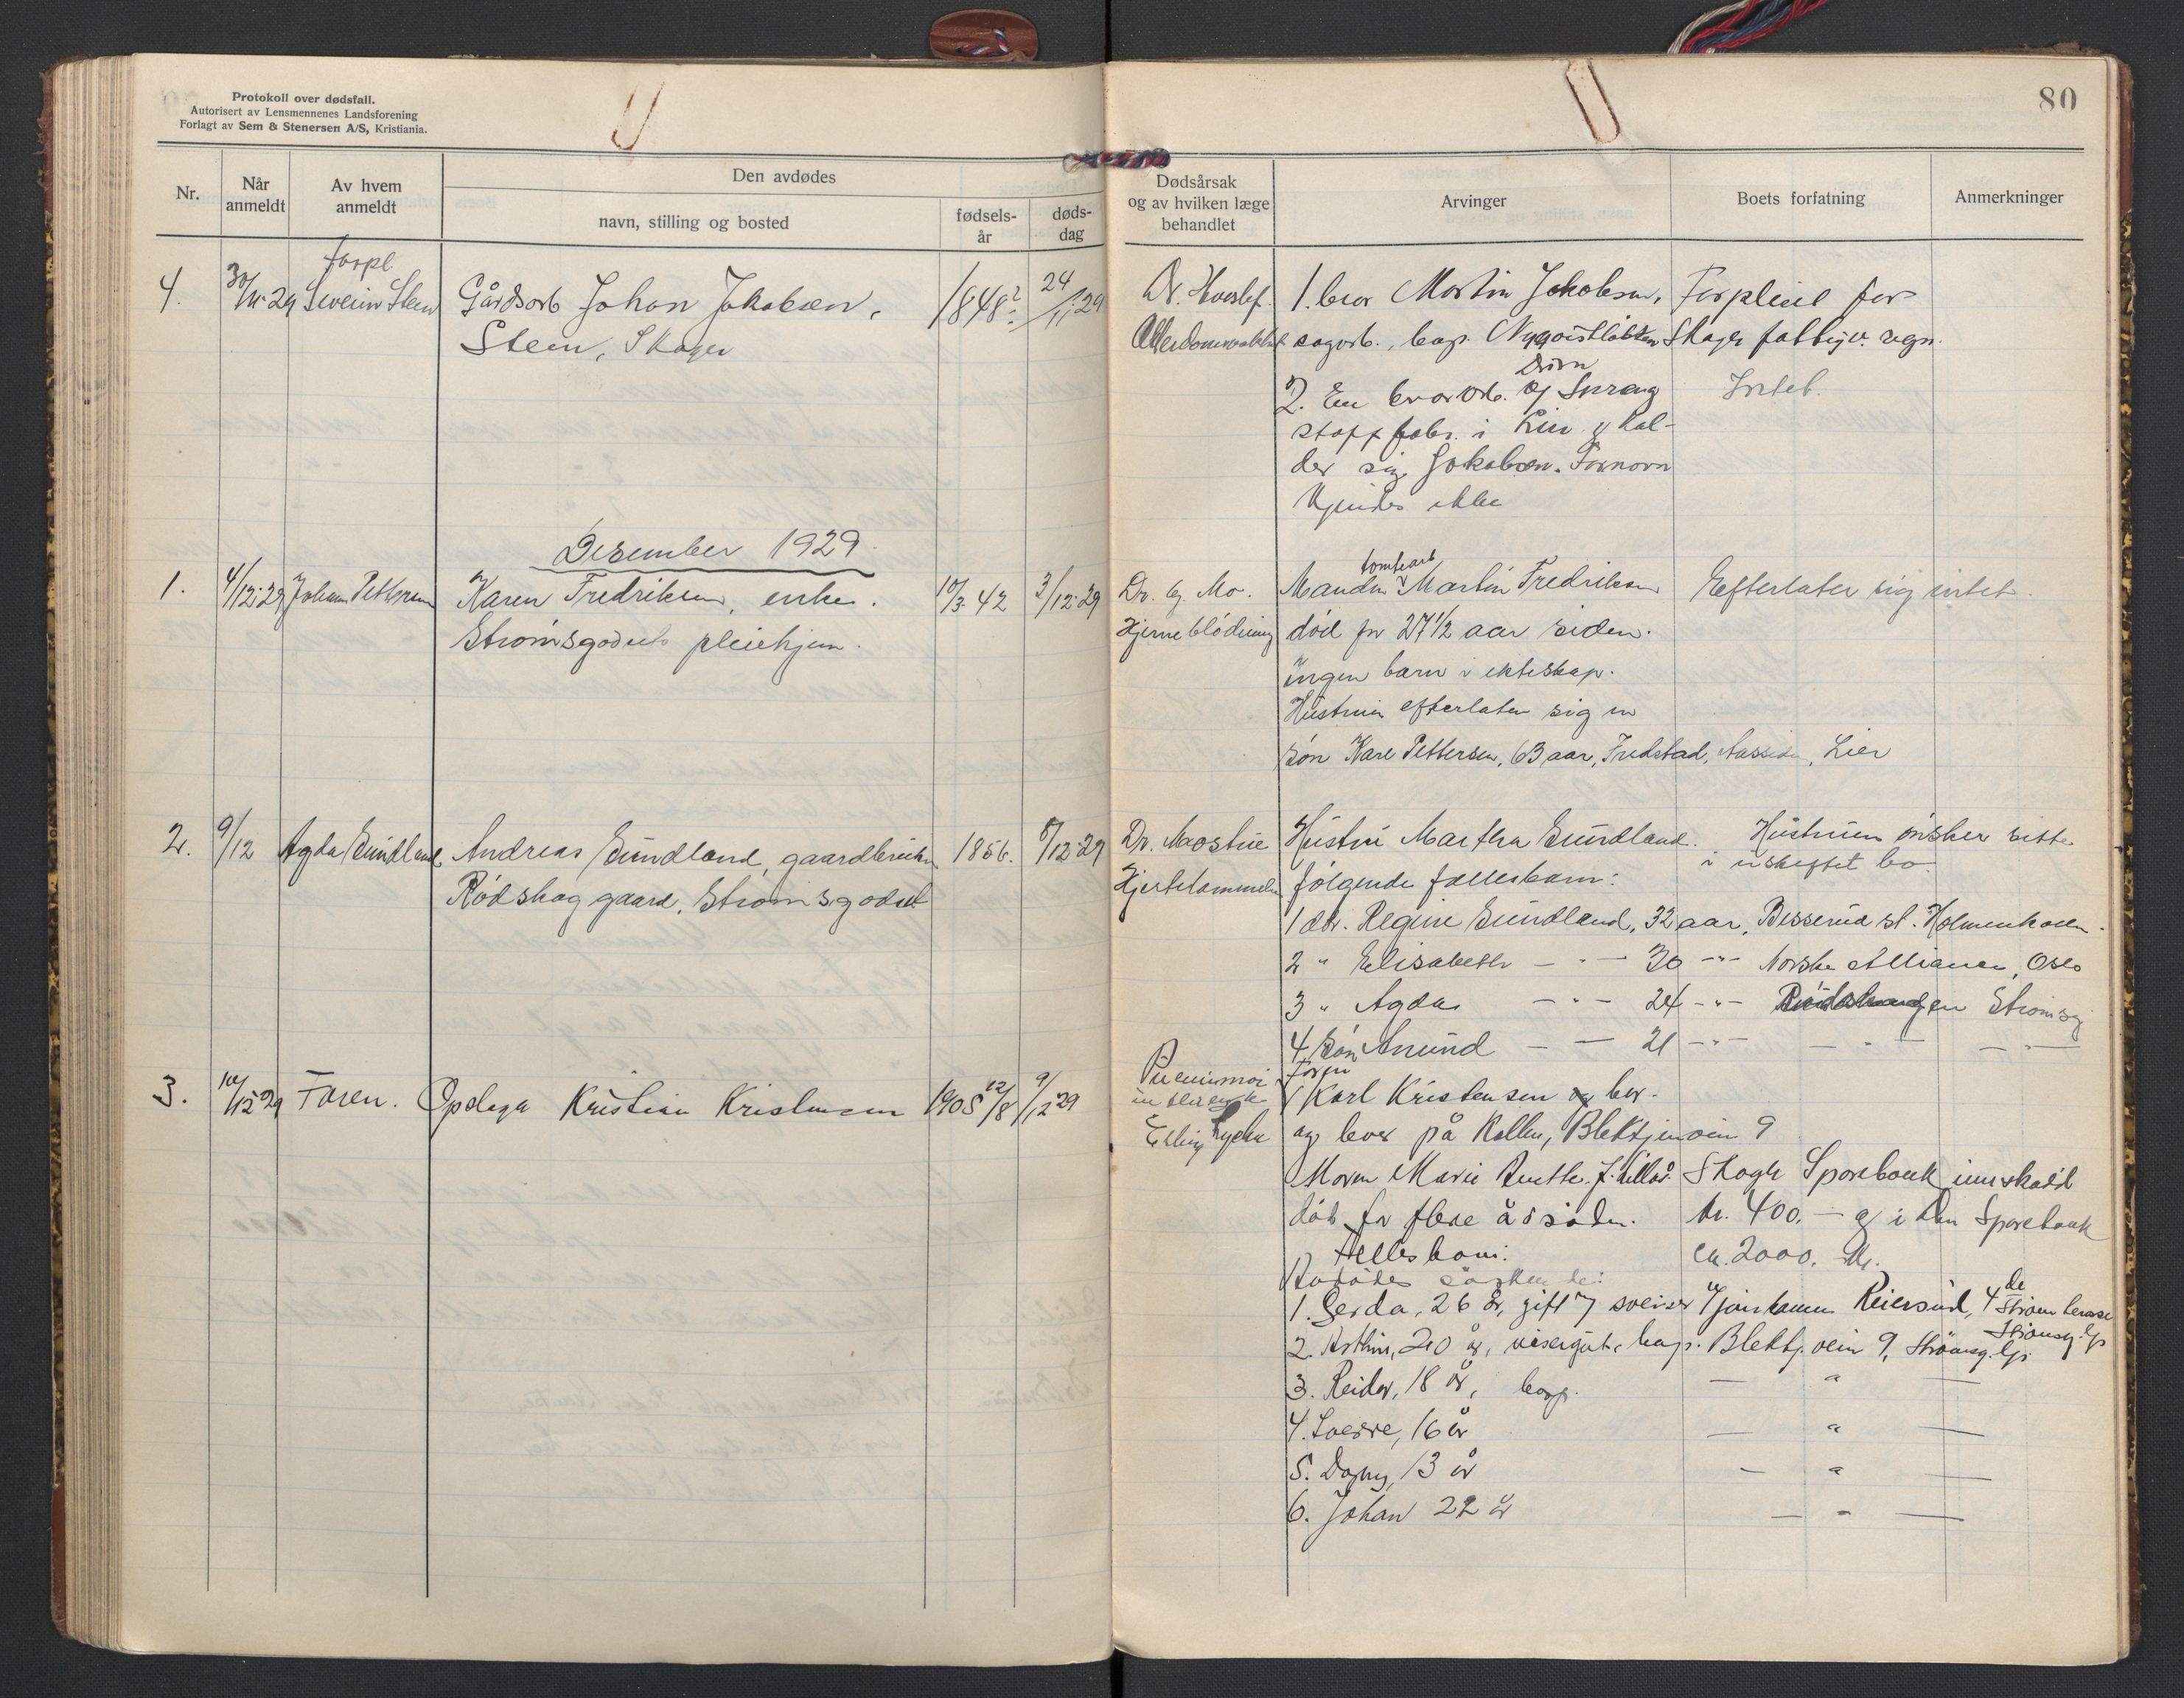 Protokoll over dødsfall.
Autorisert av Lensmennenes Landsforening
Forlagt av Sem & Stenersen A/S, Kristiania.
80
Nr.
Når anmeldt
Av hvem anmeldt
Den avdødes
navn, stilling og bosted
fødsels-år
døds-dag
Dødsårsak og av hvilken læge behandlet
Arvinger
Boets forfatning
Anmerkninger
4. 30/11-29 forpl. Severin Steen Gårdsarb Johan Jakobsen, 1848? 24/11 29
Steen, Skoger
Dr.
1. bror Martin Jakobsen,
sagarb., bop.
2. En bror arb. og
stoff fabr. i Lier & kal-
der sig Jakobsen. Fornavn
kjendes ikke
Forpleiet for
Skoger fattigv. regn.
Intet.
Desember 1929
1. 4/12-29 Johan Pettersen Karen Fredriksen, enke. 10/3 42 3/12-29
Strømsgodset pleiehjem.
Dr. Mo.
Hjerneblødning
Manden Martin Fredriksen
død for 27 1/2 aar siden.
ingen barn i ekteskap.
Hustruen efterlater sig en
søn Karl Pettersen, 63 aar, Fredstad, Lier
Efterlater sig intet.
2. 9/12 Agda Sundland Andreas Sundland, gaardbruker 1856. 8/12-29
Rødskog gaard, Strømsgodset
Dr. Mostue
Hjertelammelse
Hustru Martha Sundland.
følgende fællesbarn:
Hustruen ønsker sitte
i uskiftet bo.
1 dtr. Regine Sundland, 32 aar, Besserud st. Holmenkollen.
2 " Elisabeth - " - 30 - " - Norske Alliance, Oslo
3 " Agda - " - 24 - " - Strømsg
4 Søn Amund - - 21 - " - - " - - " -
3. 10/12 29 Faren. Kristian Kristensen 1905 12/8 9/12 29
Faren
Karl Kristensen
og lever på Kollen, Blektjernvein 9
Moren Marie
død for flere år siden.
Fellesbarn:
Skoger Sparebank innskudd
kr. 400.- og i Sparebank
ca. 2000. kr.
Avdødes søsken de:
1. Gerda, 26 år, gift m/ sveiser Reiersrud,
2. 20 år, visergut, bop. Blektj. vein 9, Strømsg.
3. Reidar, 18 år, bop. - " -
4. Sverre, 16 år - " -
5. Dagny, 13 år - " -
6. Johan 22 år - " -